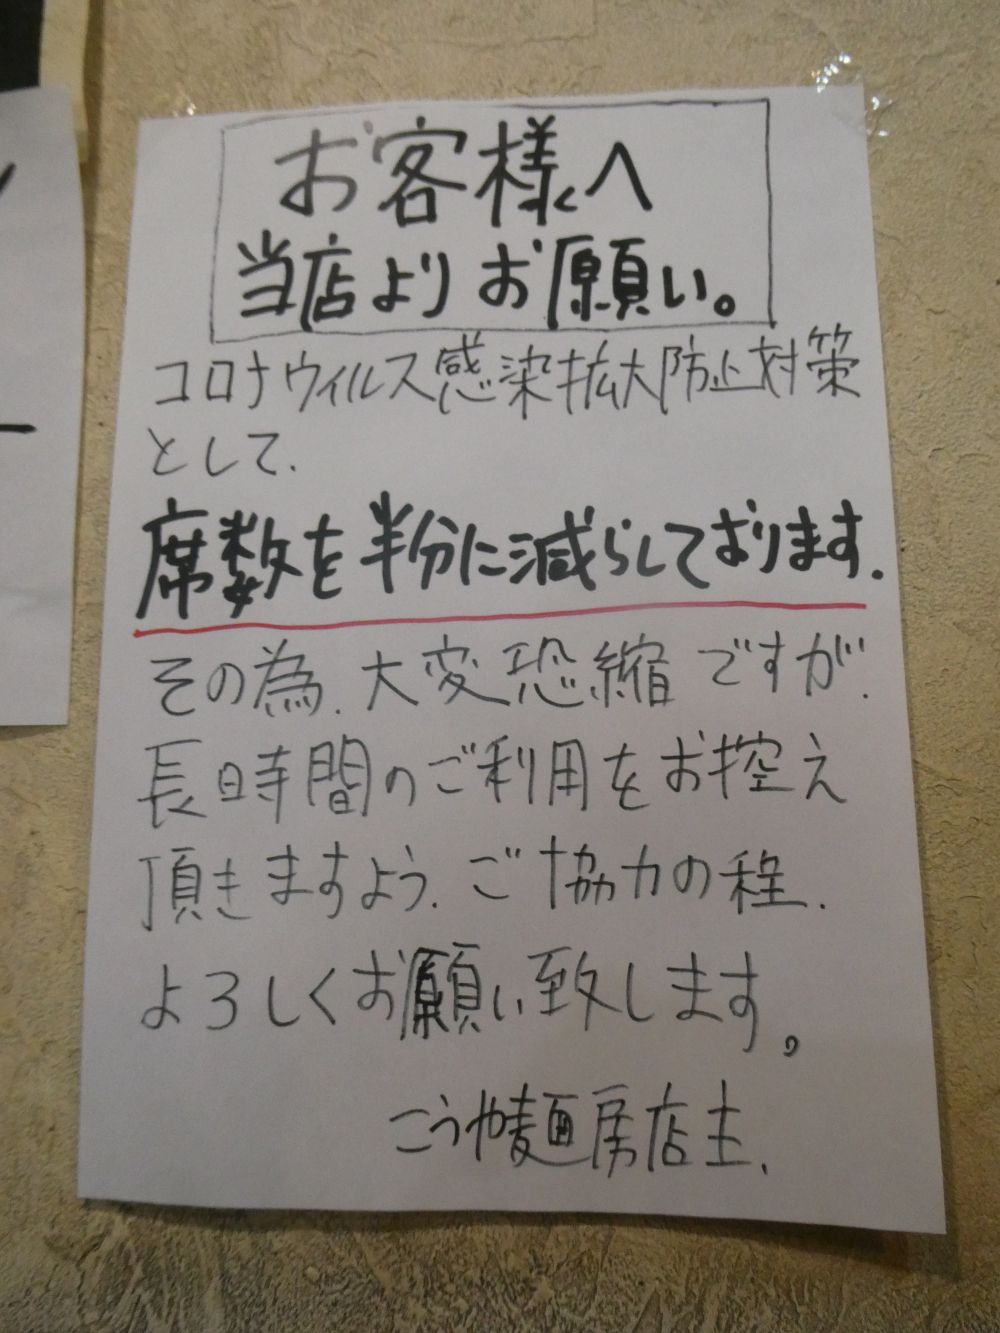 お客様へ
当店よりお願い。
コロナウィルス感染拡大防止対策
として、
席数を半分に減らしております。
その為、大変恐縮ですが、
長時間のご利用をお控え
頂きますよう、ご協力の程、
よろしくお願い致します。
こうや麺房店主、